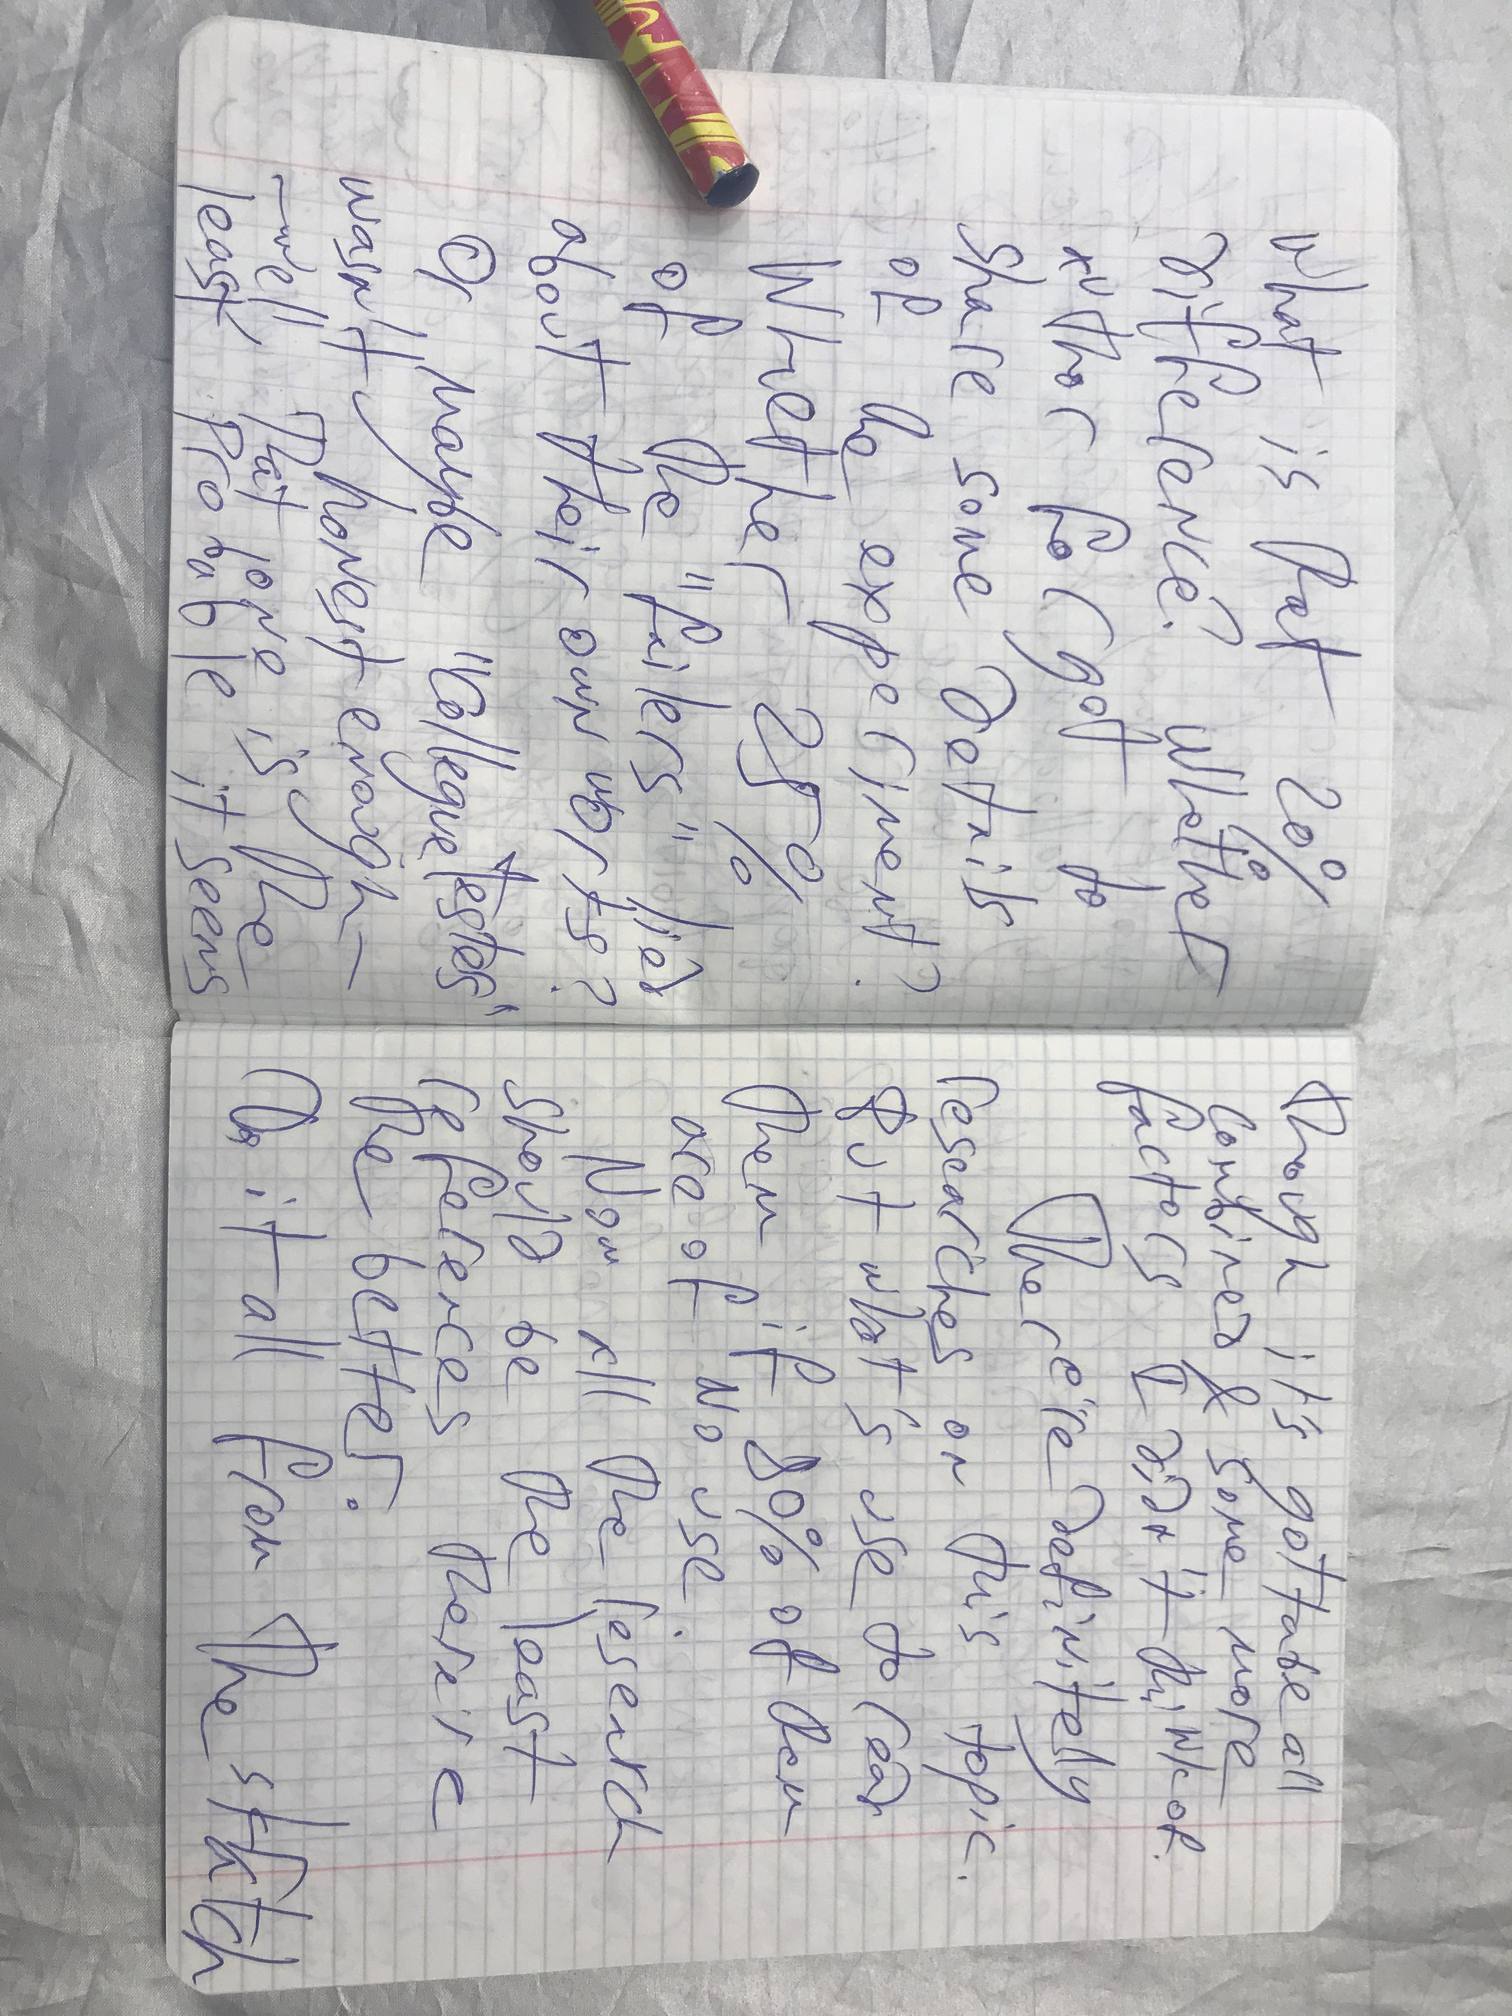 What is that 20%
difference? Whether
author forgot to
share some details
of the experiment?
Whether 25%
of the "failers" lied
about their own worts?
Or maybe "collegue testes"
wasn't honest enough –
– well that one is the
least probable it seems
though it's gotta be all
combined & some more
factors I didn't think of.
There're definitely
researches on this topic.
But what's use to read
them if 80% of them
are of no use.
Now all the reserch
should be the least
references there're
the better.
Do it all from the skratch